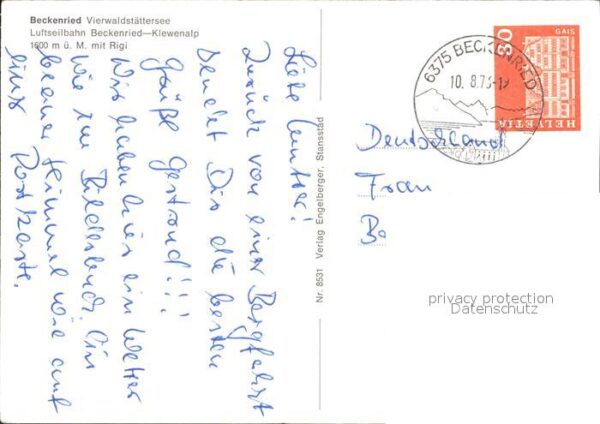 Beckenried Vierwaldstättersee
Luftseilbahn Beckenried—Klewenalp
1600 m ü. M. mit Rigi
Liebe Mutter!
Zurück von einer Bergfahrt
sendet Dir die besten
Grüße Gertraud!!!
Wir haben hier ein Wetter
wie im Bilderbuch. Ein
blauer Himmel wie auf
einer Postkarte.
Nr. 8531 Verlag Engelberger, Stansstad
6375 BECKENRIED
10. 8.73-1
80
GAIS
HELVETIA
Deutschland
Frau
B
privacy protection
Datenschutz